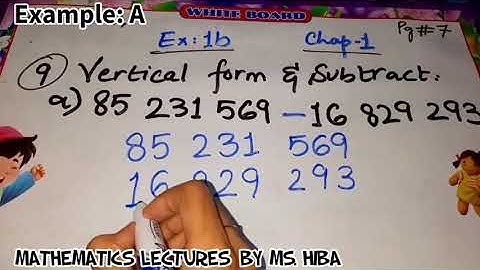 Example: A
WHITE BOARD
Pg#7
Ex:1b Chap-1
9 Vertical form & Subtract.
a) 85 231 569 – 16 829 293
85 231 569
16 829 293
MATHEMATICS LECTURES BY MS HIBA